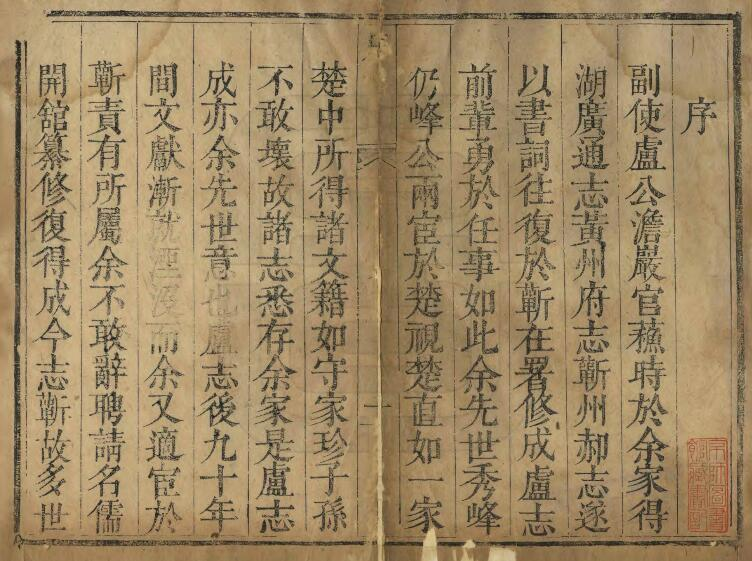 序
副使盧公澹巖官蘓時於余家得
湖廣通志黃州府志蘄州郝志逐
以書詞往復於蘄在署修成盧志
前輩勇於任事如此余先世秀峰
仍峰公兩宦於楚視楚直如一家
楚中所得諸文籍如守家珍子孫
不敢壞故諸志悉存余家是盧志
成亦余先世意也盧志後九十年
間文獻漸就湮沒而余又適宦於
蘄責有所屬余不敢辭聘請名儒
開舘纂修復得成今志蘄故多世